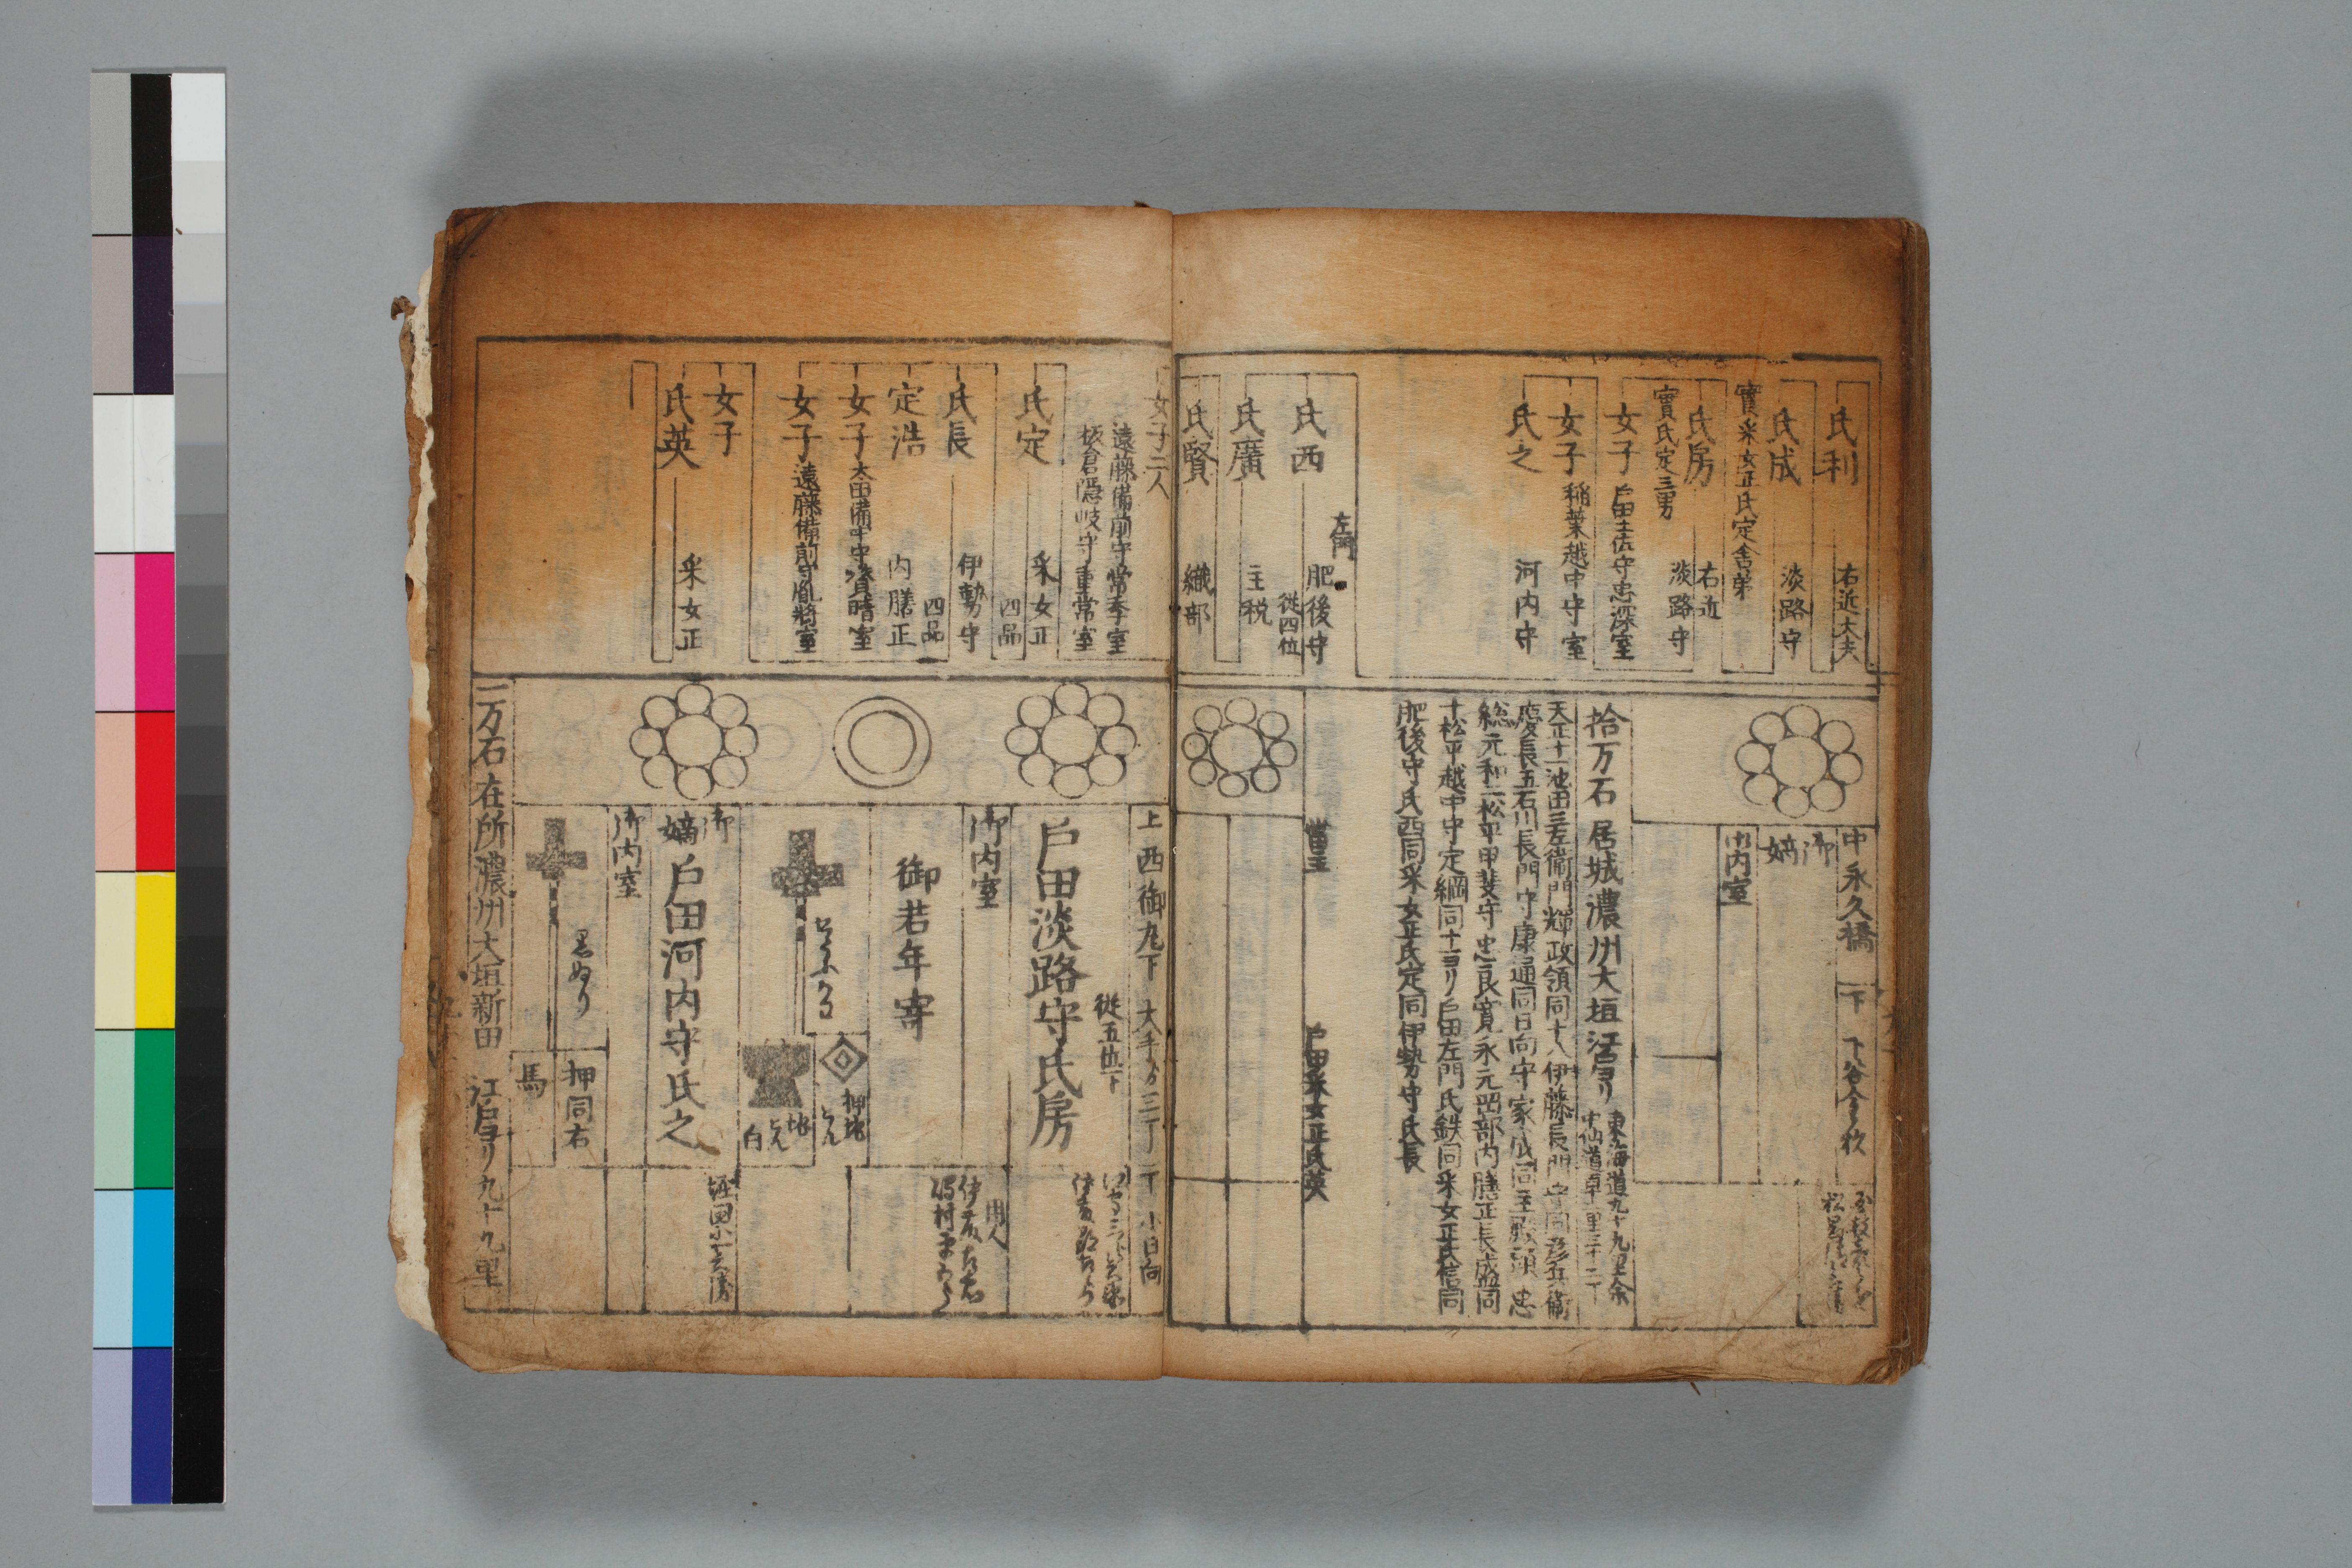 氏利 右近大夫
氏成 淡路守
實采女正氏定舎弟
氏房 右近
淡路守
實氏定三男
女子 戸田土佐守忠深室
女子 稲葉越中守室
氏之 河内守
左門
氏西 肥後守
従四位
氏廣 主税
氏賢 織部
中永久橋
下
御嫡
御内室
拾万石 居城濃州大垣 江戸ヨリ
東海道九十九里余
天正十一池田三左衛門輝政領同十八伊藤長門守同彦兵衛
慶長五石川長門守康通同日向守家成同主殿頭忠
総元和二松平甲斐守忠良寛永元岡部内膳正長盛同
十松平越中守定綱同十二ヨリ戸田左門氏鉄同采女正氏信同
肥後守氏西同采女正氏定同伊勢守氏長
當主 戸田采女正氏英
女子二人
遠藤備前守常季室
板倉隠岐守重常室
氏定 采女正
四品
氏長 伊勢守
四品
定浩 内膳正
女子 太田備中守資晴室
女子 遠藤備前守胤将室
女子
氏英 采女正
上 西御丸下 大手ヨリ三丁
下 小日向
従五位下
戸田淡路守氏房
御内室
御若年寄
用人
押
地
白
御嫡 戸田河内守氏之
御内室
黒ぬり
押同右
馬
一万石 在所濃州大垣新田 江戸ヨリ九十九里